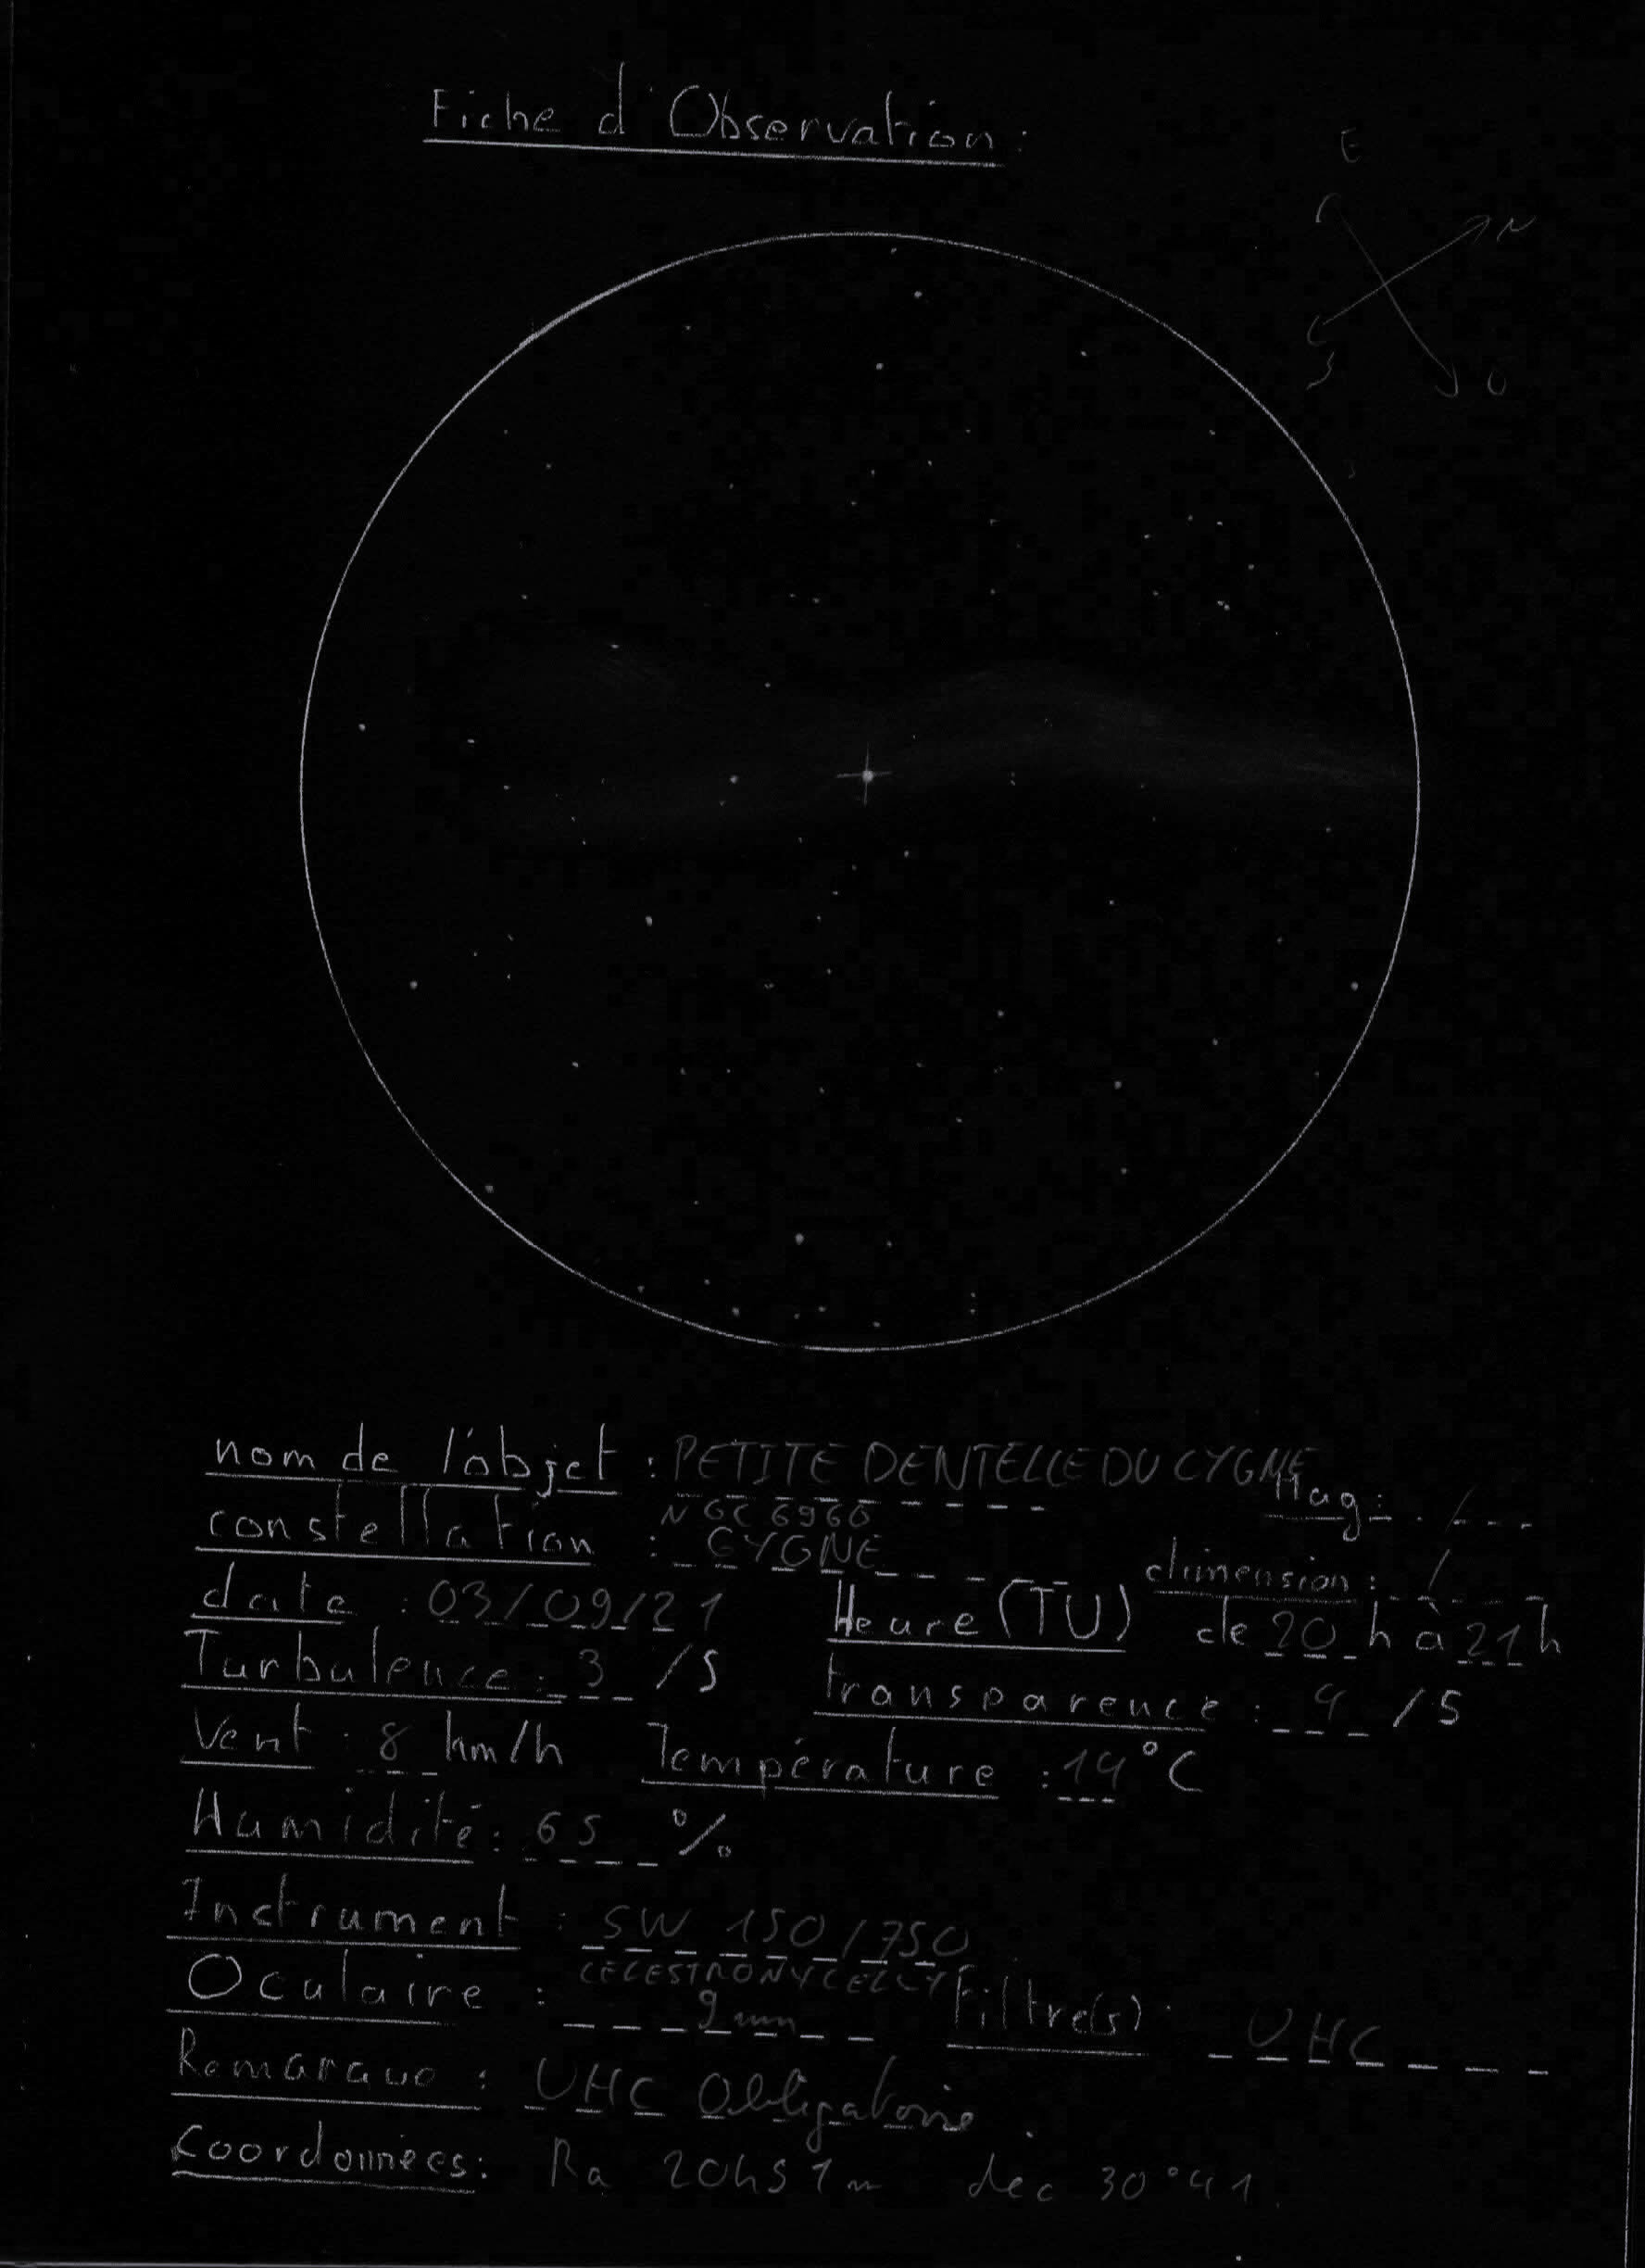 Fiche d'Observation:
E
N
S
O
nom de l'objet : PETITE DENTELLE DU CYGNE
NGC 6960
Mag: /
constellation : CYGNE
dimension: /
date : 03/09/21 Heure (TU) de 20 h à 21h
Turbulence: 3 /5 transparence: 4 /5
Vent: 8 km/h Température : 14°C
Humidité: 65 %
Instrument : SW 150/750
Oculaire : CELESTRON 9mm Filtre(s): UHC
Remarque : UHC Obligatoire.
Coordonnées: Ra 20h51m dec 30°41.